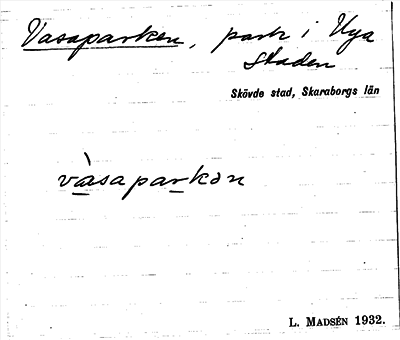 Vasaparken, park i Nya
Staden
Skövde stad, Skaraborgs län
vàsaparkən
L. MADSÉN 1932.